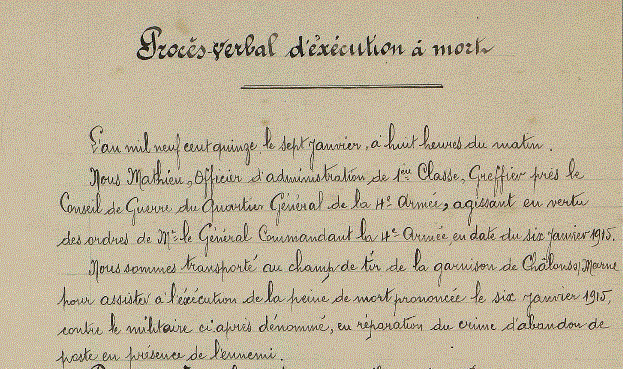 Procès-verbal d'éxécution à mort
L'an mil neuf cent quinze le sept janvier, à huit heures du matin.
Nous Mathieu, Officier d'administration de 1ère Classe, Greffier près le
Conseil de Guerre du Quartier Général de la 4e Armée, agissant en vertu
des ordres de Mr le Général Commandant la 4e Armée en date du six janvier 1915.
Nous sommes transporté au champ de tir de la garnison de Châlons s/Marne
pour assister à l'éxécution de la peine de mort prononcée le six janvier 1915,
contre le militaire ci-après dénommé, en réparation du crime d'abandon de
poste en présence de l'ennemi.